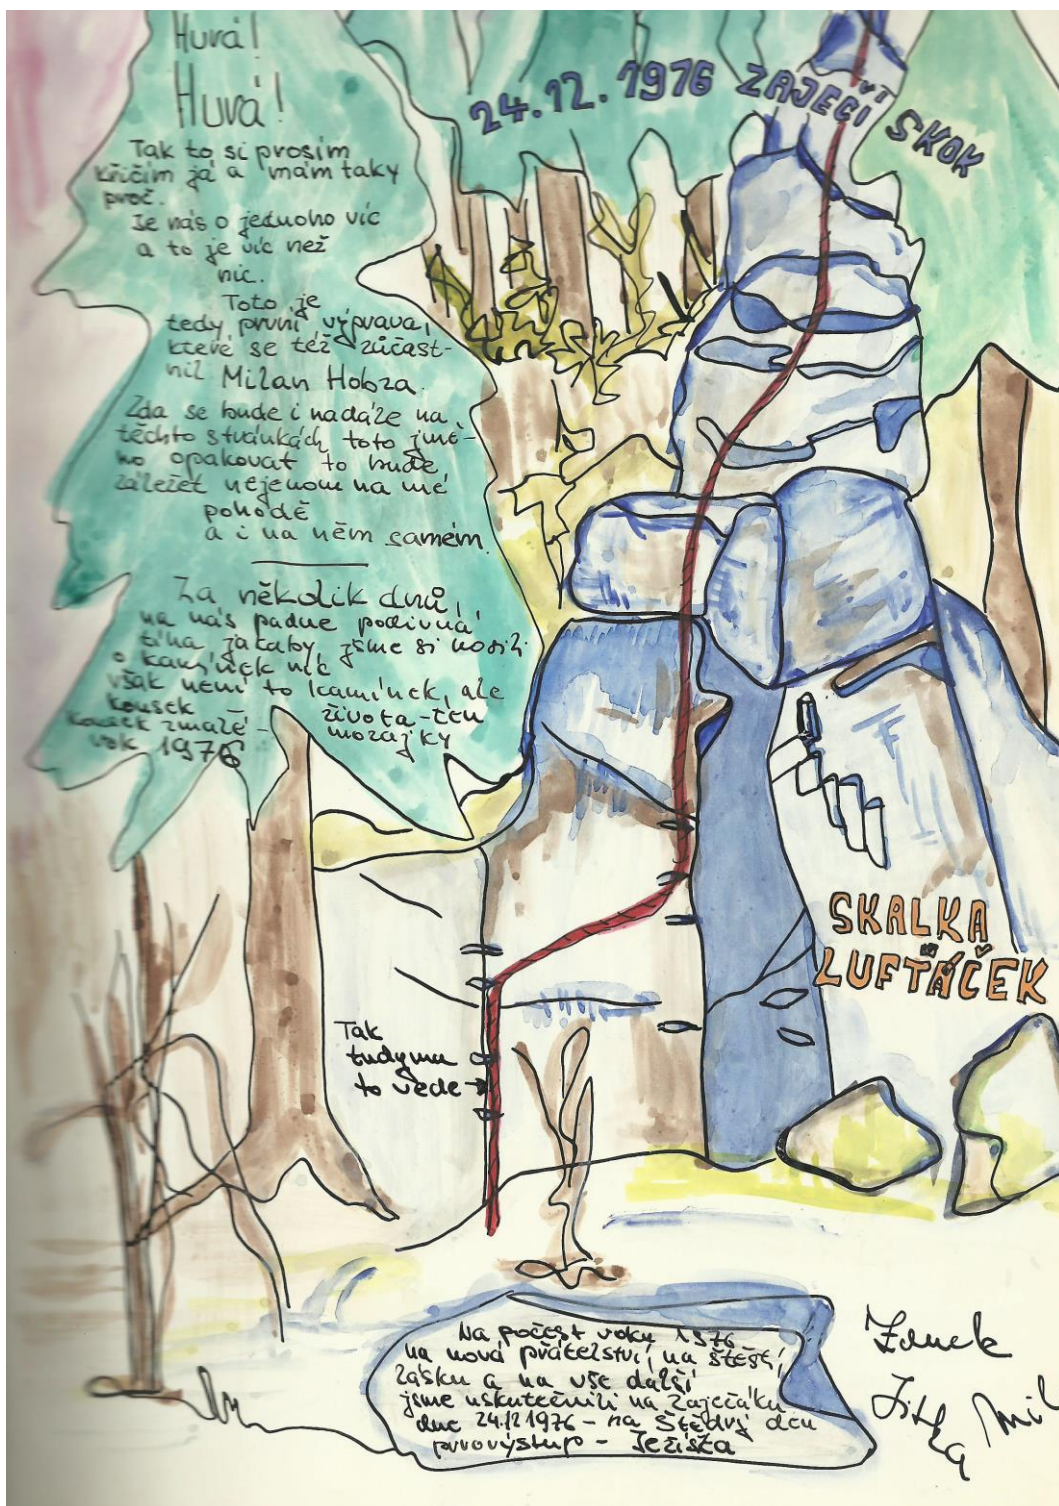 Hurá!
Hurá!
24.12.1976 ZAJEČÍ SKOK
Tak to si prosím
křičím já a mám taky
proč.
Je nás o jednoho víc
a to je víc než
nic.
Toto je
tedy první výprava,
které se též zúčast-
nil Milan Hobza.
Zda se bude i nadále na
těchto stránkách toto jmé-
no opakovat to bude
záležet nejenom na mé
pohodě
a i na něm samém.
Za několik dnů,
na nás padne podivná
tíha jakoby jsme si nosili
o kamínek víc
však není to kamínek, ale
kousek života-ten
kousek mozajky
rok 1976
SKALKA
LUFŤÁČEK
Tak
tudyma
to vede
Na počest roku 1976
na nová přátelství, na štěstí,
lásku a na vše další
jsme uskutečnili na Zaječáku
dne 24.12.1976 - na Štědrý den
prvovýstup - Ježíška
Zdenek
Jitka Mil